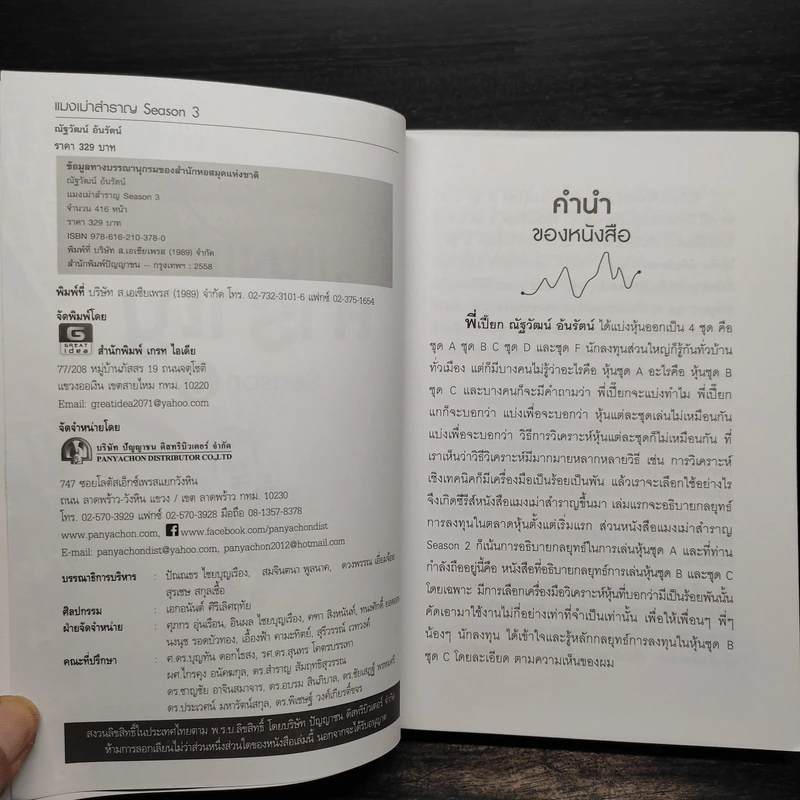 แมงเม่าสำราญ Season 3
ณัฐวัฒน์ อ้นรัตน์
ราคา 329 บาท
ข้อมูลทางบรรณานุกรมของสำนักหอสมุดแห่งชาติ
ณัฐวัฒน์ อ้นรัตน์
แมงเม่าสำราญ Season 3
จำนวน 416 หน้า
ราคา 329 บาท
ISBN 978-616-210-378-0
พิมพ์ที่ บริษัท ส.เอเซียเพรส (1989) จำกัด
สำนักพิมพ์ปัญญาชน – กรุงเทพฯ : 2558
พิมพ์ที่ บริษัท ส.เอเซียเพรส (1989) จำกัด โทร. 02-732-3101-6 แฟกซ์ 02-375-1654
จัดพิมพ์โดย
G
GREAT
idea
สำนักพิมพ์ เกรท ไอเดีย
77/208 หมู่บ้านภัสสร 19 ถนนจตุโชติ
แขวงออเงิน เขตสายไหม กทม. 10220
Email: greatidea2071@yahoo.com
จัดจำหน่ายโดย
บริษัท ปัญญาชน ดิสทริบิวเตอร์ จำกัด
PANYACHON DISTRIBUTOR CO.,LTD
747 ซอยโลตัสเอ็กซ์เพรสแยกวังหิน
ถนน ลาดพร้าว-วังหิน แขวง / เขต ลาดพร้าว กทม. 10230
โทร. 02-570-3929 แฟกซ์ 02-570-3928 มือถือ 08-1357-8378
www.panyachon.com, www.facebook.com/panyachondist
E-mail: panyachondist@yahoo.com, panyachon2012@hotmail.com
บรรณาธิการบริหาร : ปัณณธร ไชยบุญเรือง, สมจินตนา พูลนาค, ดวงพรรณ เอี่ยมจ้อย
สุรเชษ สกุลเชื้อ
ศิลปกรรม : เอกอนันต์ ศิริเลิศฤทัย
ฝ่ายจัดจำหน่าย : ศุภกร อุ่นเรือน, อินผล ไชยบุญเรือง, คฑา สิงหนันท์, ทนงศักดิ์
นงนุช รอดบัวทอง, เอื้องฟ้า คามะทิตย์, สุรีวรรณ์ เวทวงค์
คณะที่ปรึกษา : ศ.ดร.บุญทัน ดอกไธสง, รศ.ดร.สุนทร โคตรบรรเทา
ผศ.ไกรคุง อนัคฆกุล, ดร.สำราญ สัมฤทธิ์สุวรรณ
ดร.ชาญชัย อาจินสมาจาร, ดร.อบรม สินภิบาล, ดร.ชัยเสฏฐ์ พรหมศรี
ดร.ประเวศน์ มหารัตน์สกุล, ดร.พิเชษฐ์ วงศ์เกียรติ์ขจร
สงวนลิขสิทธิ์ในประเทศไทยตาม พ.ร.บ.ลิขสิทธิ์ โดยบริษัท ปัญญาชน ดิสทริบิวเตอร์ จำกัด
ห้ามการลอกเลียนไม่ว่าส่วนหนึ่งส่วนใดของหนังสือเล่มนี้ นอกจากจะได้รับอนุญาต
คำนำ
ของหนังสือ
พี่เปี๊ยก ณัฐวัฒน์ อ้นรัตน์ ได้แบ่งหุ้นออกเป็น 4 ชุด คือ
ชุด A ชุด B C ชุด D และชุด F นักลงทุนส่วนใหญ่ก็รู้กันทั่วบ้าน
ทั่วเมือง แต่ก็มีบางคนไม่รู้ว่าอะไรคือ หุ้นชุด A อะไรคือ หุ้นชุด B
ชุด C และบางคนก็จะมีคำถามว่า พี่เปี๊ยกจะแบ่งทำไม พี่เปี๊ยก
แกก็จะบอกว่า แบ่งเพื่อจะบอกว่า หุ้นแต่ละชุดเล่นไม่เหมือนกัน
แบ่งเพื่อจะบอกว่า วิธีการวิเคราะห์หุ้นแต่ละชุดก็ไม่เหมือนกัน ที่
เราเห็นว่าวิธีวิเคราะห์มีมากมายหลากหลายวิธี เช่น การวิเคราะห์
เชิงเทคนิคก็มีเครื่องมือเป็นร้อยเป็นพัน แล้วเราจะเลือกใช้อย่างไร
จึงเกิดซีรีส์หนังสือแมงเม่าสำราญขึ้นมา เล่มแรกจะอธิบายกลยุทธ์
การลงทุนในตลาดหุ้นตั้งแต่เริ่มแรก ส่วนหนังสือแมงเม่าสำราญ
Season 2 ก็เน้นการอธิบายกลยุทธ์ในการเล่นหุ้นชุด A และที่ท่าน
กำลังถืออยู่นี้คือ หนังสือที่อธิบายกลยุทธ์การเล่นหุ้นชุด B และชุด C
โดยเฉพาะ มีการเลือกเครื่องมือวิเคราะห์หุ้นที่บอกว่ามีเป็นร้อยพันนั้น
คัดเอามาใช้งานไม่กี่อย่างเท่าที่จำเป็นเท่านั้น เพื่อให้เพื่อนๆ พี่ๆ
น้องๆ นักลงทุน ได้เข้าใจและรู้หลักกลยุทธ์การลงทุนในหุ้นชุด B
ชุด C โดยละเอียด ตามความเห็นของผม